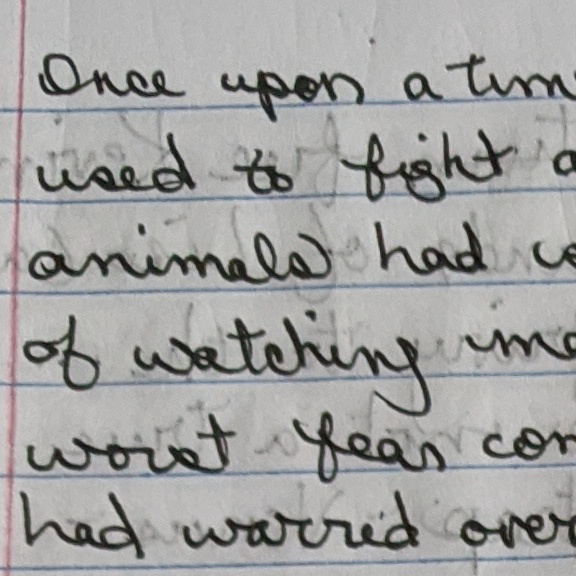 Once upon a tim
used to fight a
animals had
of watching
worst fear con
had warred over